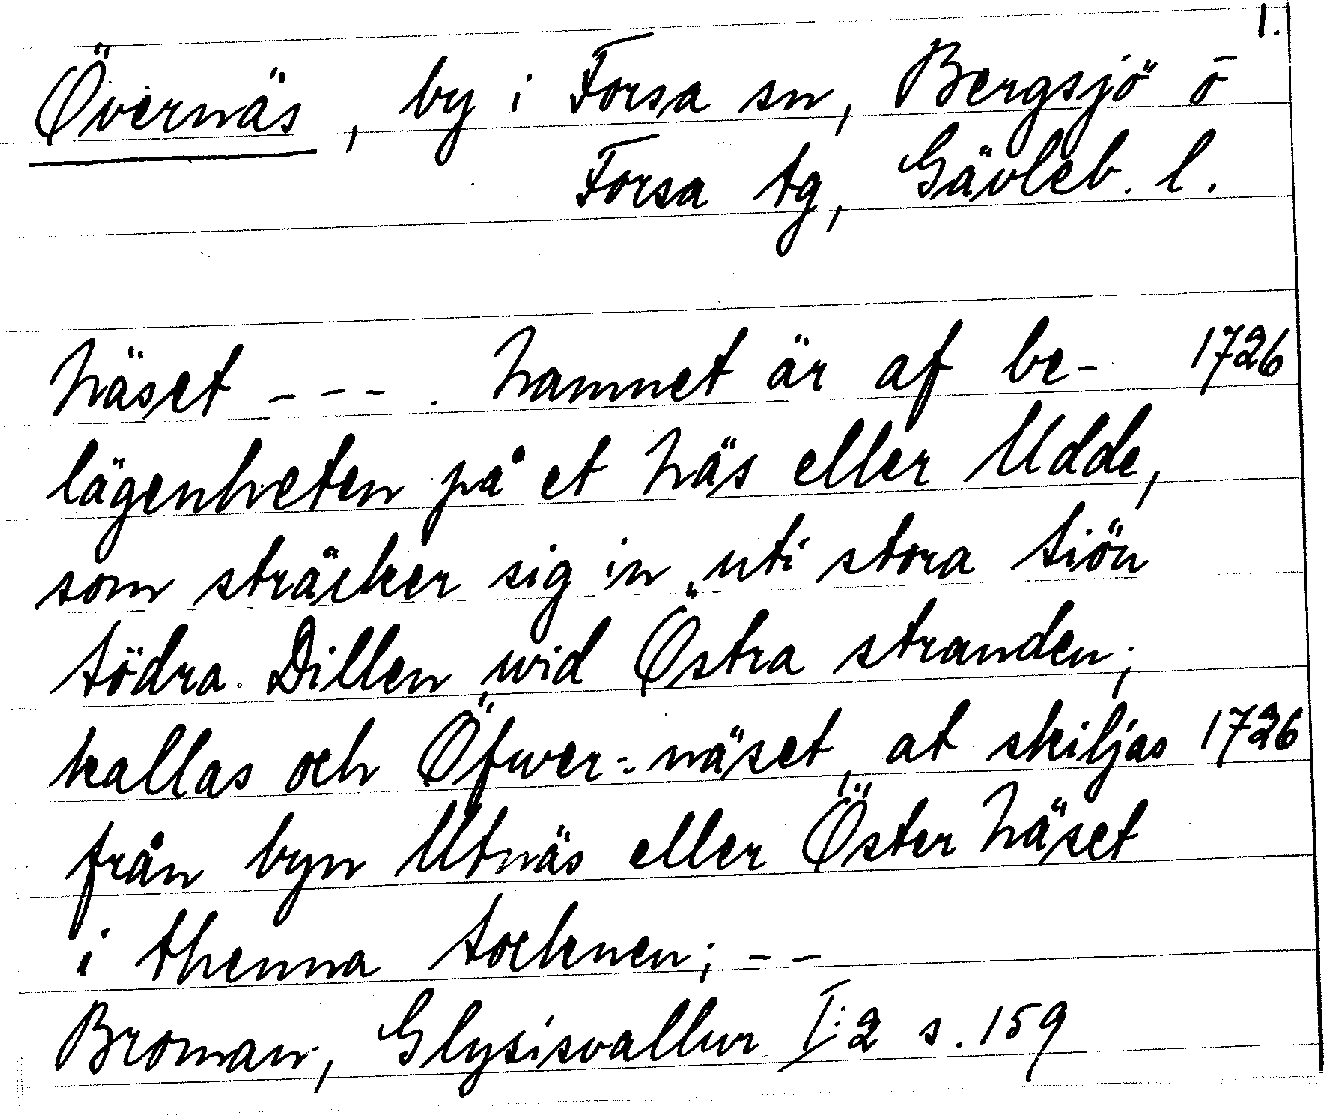 1.
Övernäs, by i Forsa sn, Bergsjö o
Forsa tg, Gävleb. l.
Näset - - - . Namnet är af be- 1726
lägenheten på et Näs eller Udde,
som sträcker sig in uti stora Siön
Södra Dillen wid Östra stranden;
kallas och Öfwer-näset, at skiljas 1726
från byn Utnäs eller Öster Näset
i thenna Socknen; - -
Broman, Glysisvallur I:2 s. 159